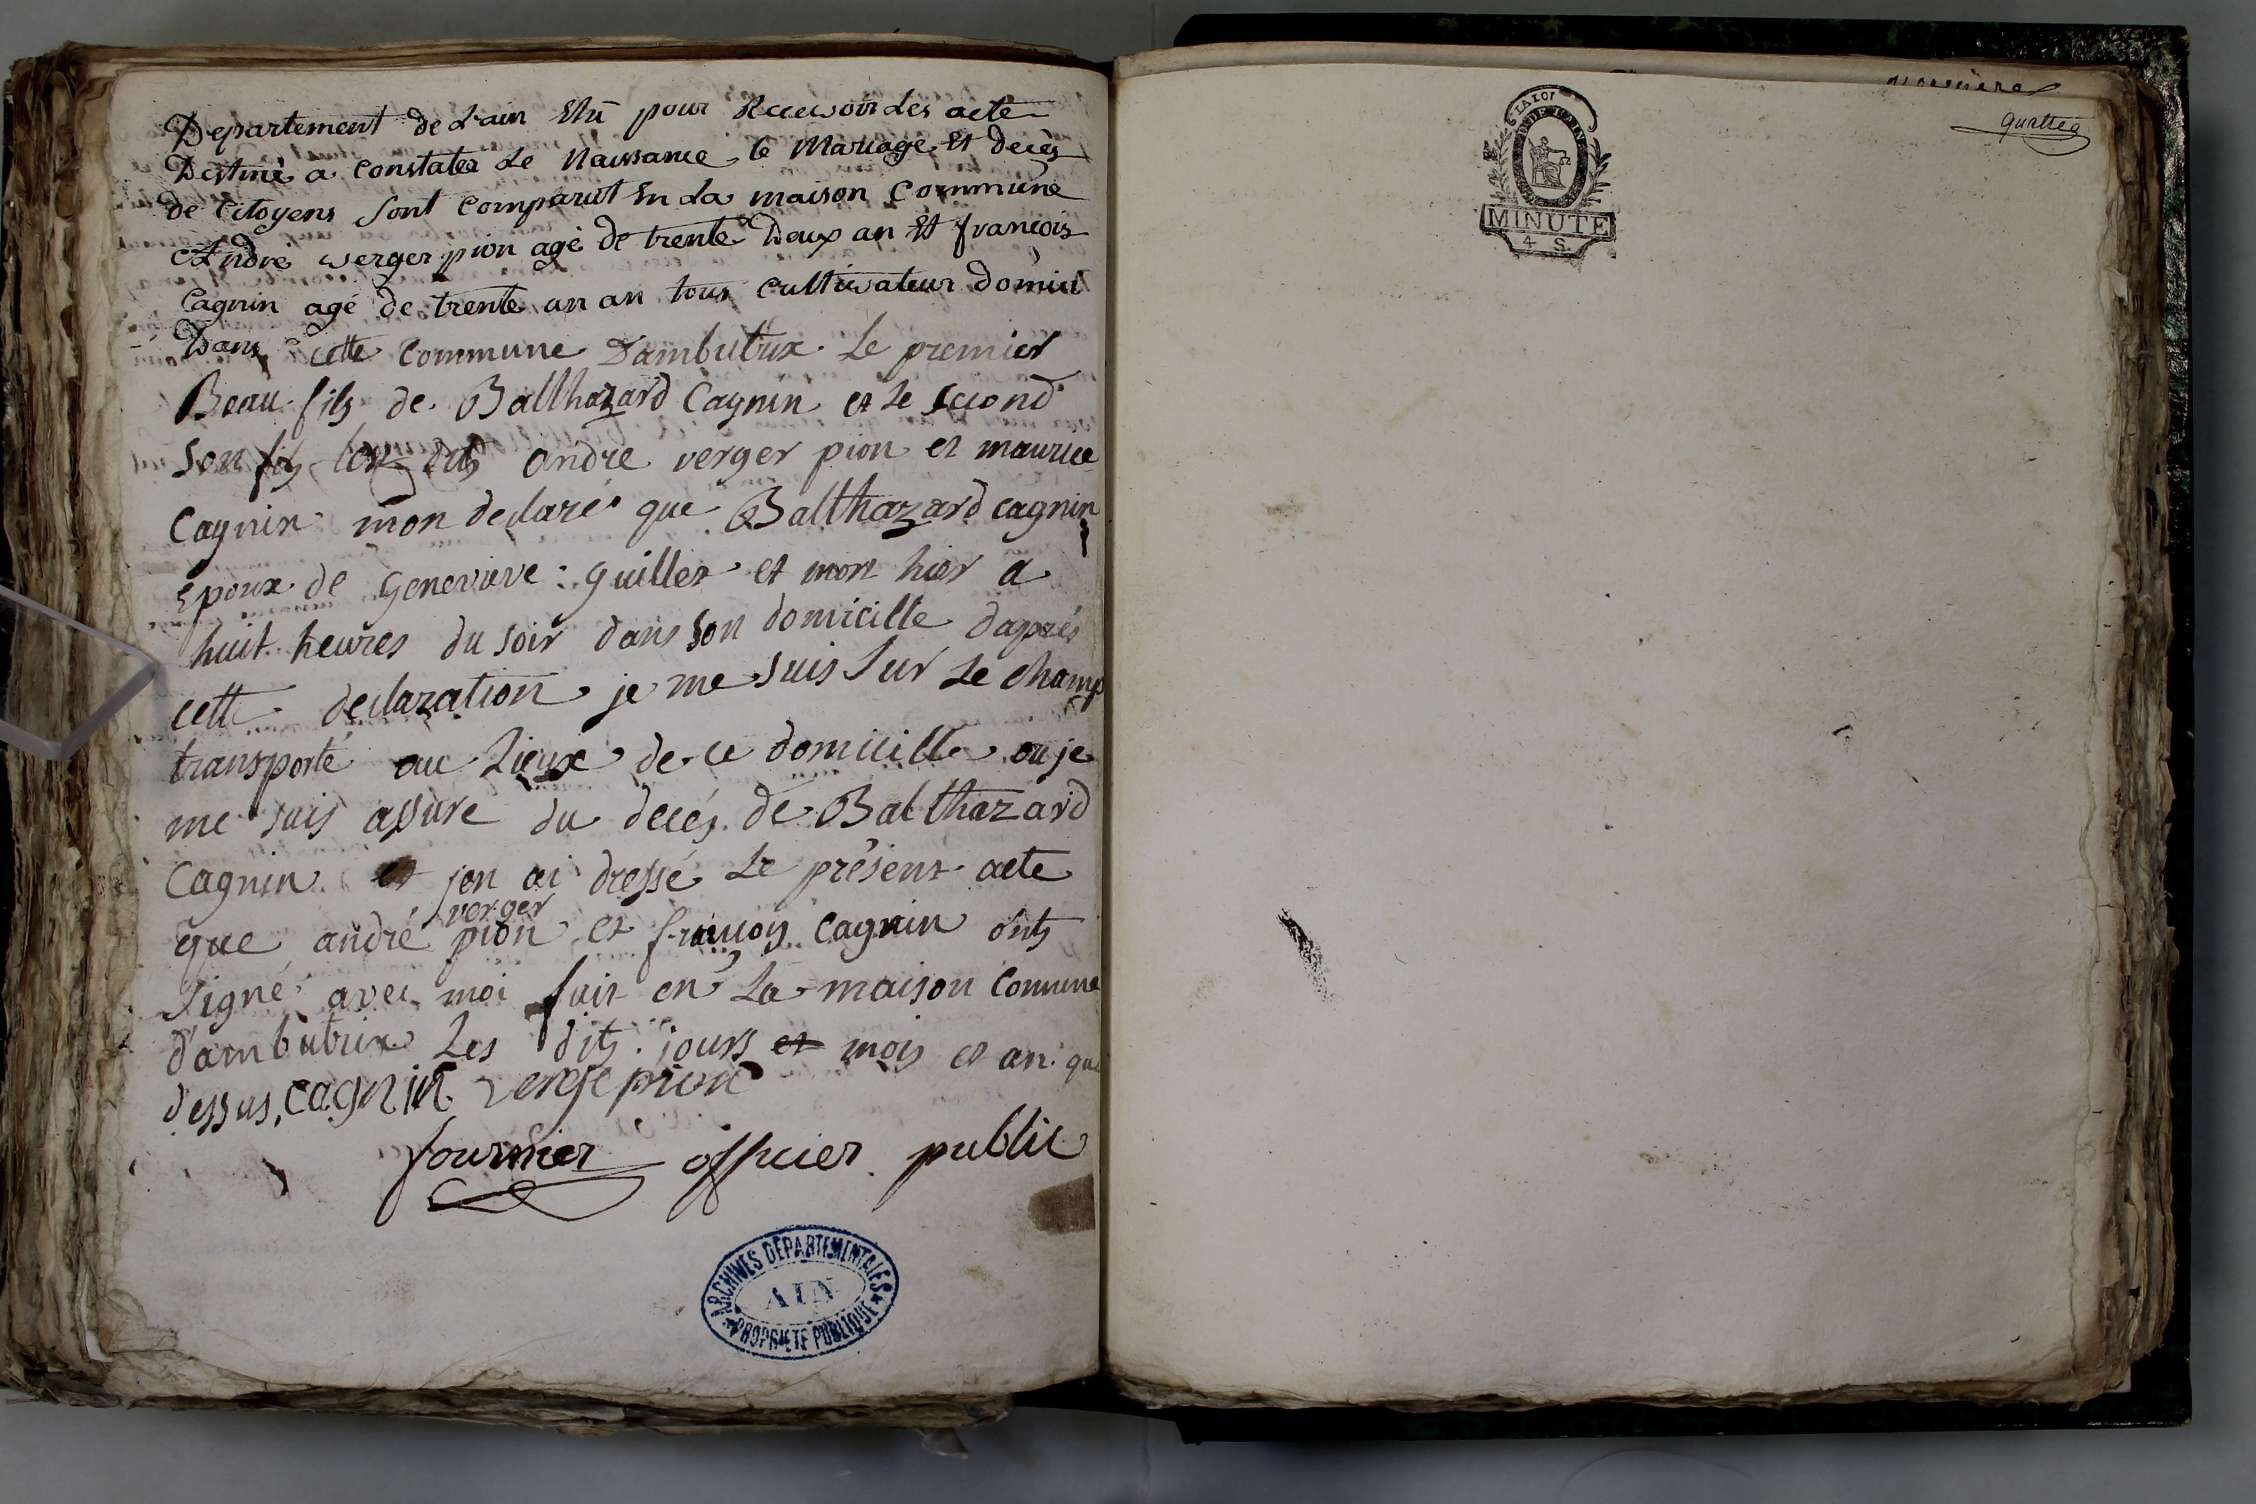 Departement de Lain Elu pour Recewoir Les acte
Destiné a constater Le Naissance le Mariage Et decès
de Citoyens sont comparut En La maison Commune
André werger pion agé de trente Deux an Et francois
Cagnin agé de trente un an tous cultiwateur domicil
Dans cette commune Dambutrix Le premier
Beau fils de Balthazard Cagnin et le second
son fils andre verger pion et maurice
Cagnin mon declaré que Balthazard cagnin
Epoux de Genevieve : guillet et mort hier a
huit heures du soir dans son domicille daprés
cette declaration je me suis sur Le champ
transporté au Lieux de ce domicille ou je
me suis assuré du decés de Balthazard
Cagnin et jen ai dressé Le présent acte
verger
que andré pion et francois Cagnin onts
signé avec moi fait en La maison Comune
d'ambutrix Les dits jours et mois et an que
dessus, cagnin vergé pion
fournier officier public
ARCHIVES DÉPARTEMENTALES
AIN
PROPRIÉTÉ PUBLIQUE
LA LOI
MINUTE
4 S.